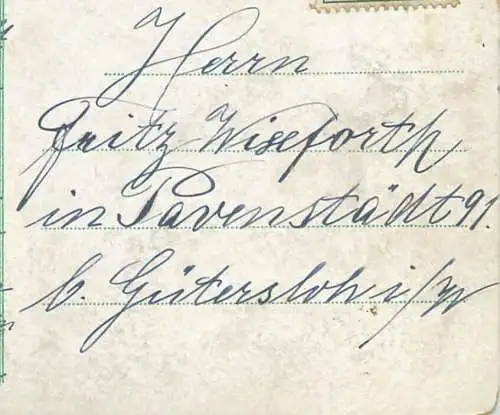 Herrn
Fritz Wiseforth
in Pavenstädt 91.
b. Gütersloh i/W